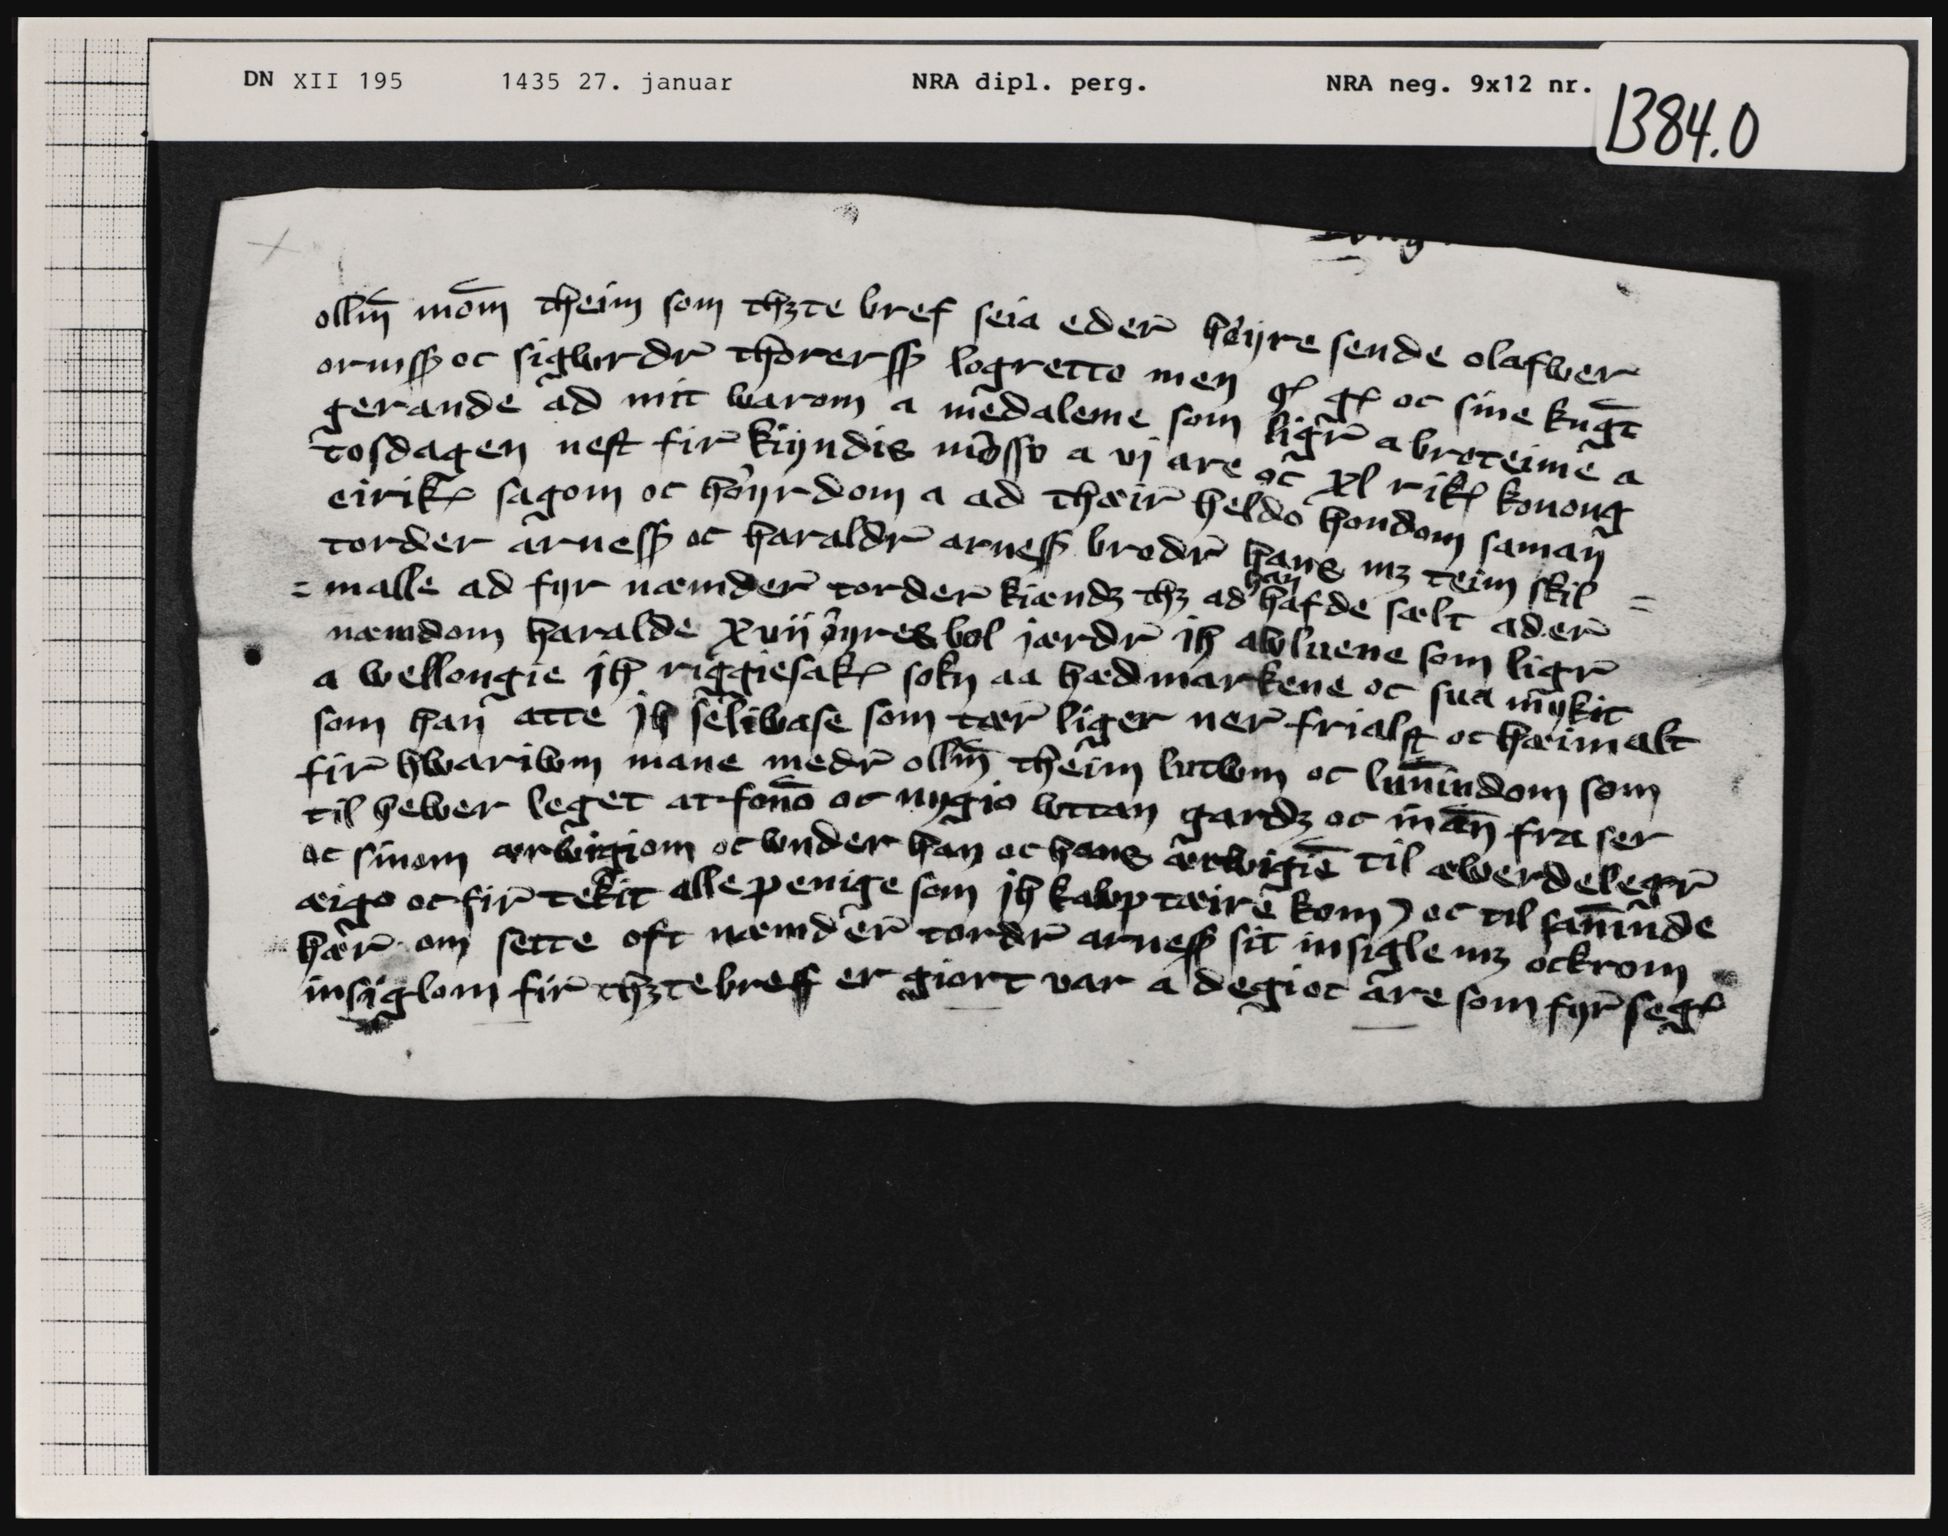 DN XII 195 1435 27. januar NRA dipl. perg. NRA neg. 9x12 nr.
1384.0
ollm̄ mom̄ theim som thꝫte bref seia eder̄ høyre sende olafwer
ormsß oc sigwrdr̄ thorersß logretto men q. g. oc sine kugt̄
gerande ad mit warom a medaleme som ligr̄ a broteime a
tosdagen nest fir̄ kyndis mosso a vj are oc xl rik konong
eirik sagom oc høyrdom a ad thæir̄ heldo hondom saman
torder arnesß oc haraldr̄ arnesß brodr̄ hans mꝫ teim skil =
= malle ad fyr næmder̄ torder̄ kiændꝫ thꝫ ad han hafde sælt ader̄
næmdom haralde xvij øyres bol jærdr̄ ih awluene som ligr̄
a wellongie jh riggiesak sokn aa hædmarkene oc sua mykit
som han atte jh seliwase som tær̄ liger ner̄ frialst oc hæimalt
fir̄ hwariwm mane medr̄ ollm̄ theim lutwm oc lun̄indom som
til hewer leget at fon̄o oc nygio wttan gardꝫ oc in̄an fra ser
oc sinom ærwigiom oc wnder han oc hans ærwigiē til æwerdelegr̄
æigo oc fir̄ tekit alle penige som jh kawp tæire kom oc til san̄inde
hær̄ om sette oft næmder̄ tordr̄ arnesß sit insigle mꝫ ockrom
insiglom fir̄ thꝫte breff er giort var a degi oc are som fyr̄ seg